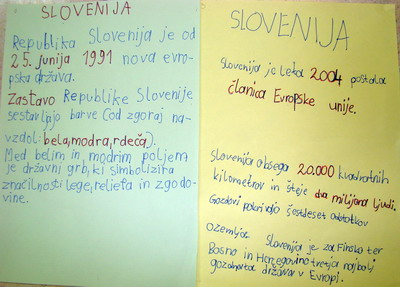 SLOVENIJA
Republika Slovenija je od
25. junija 1991 nova evro-
pska država.
Zastavo Republike Slovenije
sestavljajo barve (od zgoraj na-
vzdol: bela, modra, rdeča).
Med belim in modrim poljem
je državni grb, ki simbolizira
značilnosti lege, reliefa in zgodo-
vine.
SLOVENIJA
Slovenija je leta 2004 postala
članica Evropske unije.
Slovenija obsega 20.000 kvadratnih
kilometrov in šteje dva milijona ljudi.
Gozdovi pokrivajo šestdeset odstotkov
ozemlja. Slovenija je za Finsko ter
Bosno in Hercegovino tretja najbolj
gozdnata država v Evropi.